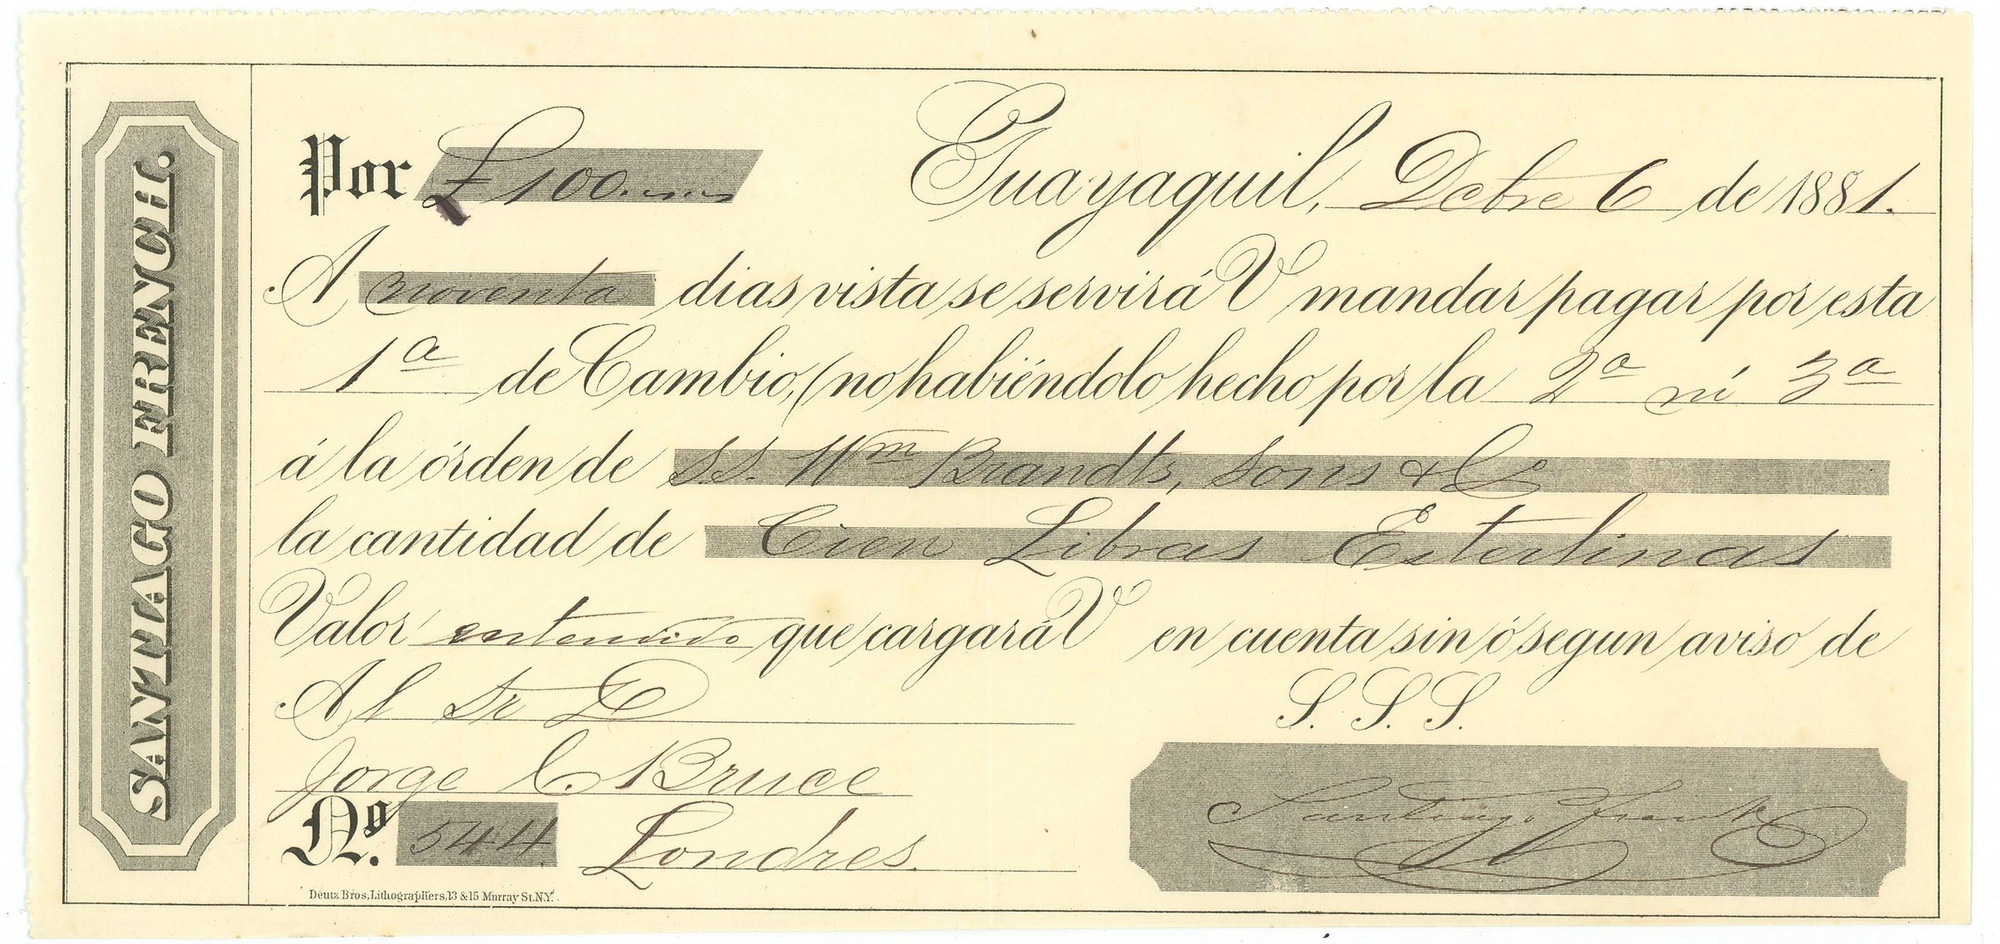 SANTIAGO FRENCH.
Por £ 100.
Guayaquil, Dcbre 6 de 1881.
A noventa dias vista se servirá V mandar pagar por esta
1ª de Cambio, (no habiéndolo hecho por la 2ª ni 3ª
á la órden de S.S. Wm Brandts, Sons & Co
la cantidad de Cien Libras Esterlinas
Valor entendido que cargará V en cuenta sin ó segun aviso de
Al Sr D
S. S. S.
Jorge C. Bruce
Santiago French
Nº. 544 Londres.
Deutz Bros, Lithographers, 13 & 15 Murray St. N.Y.